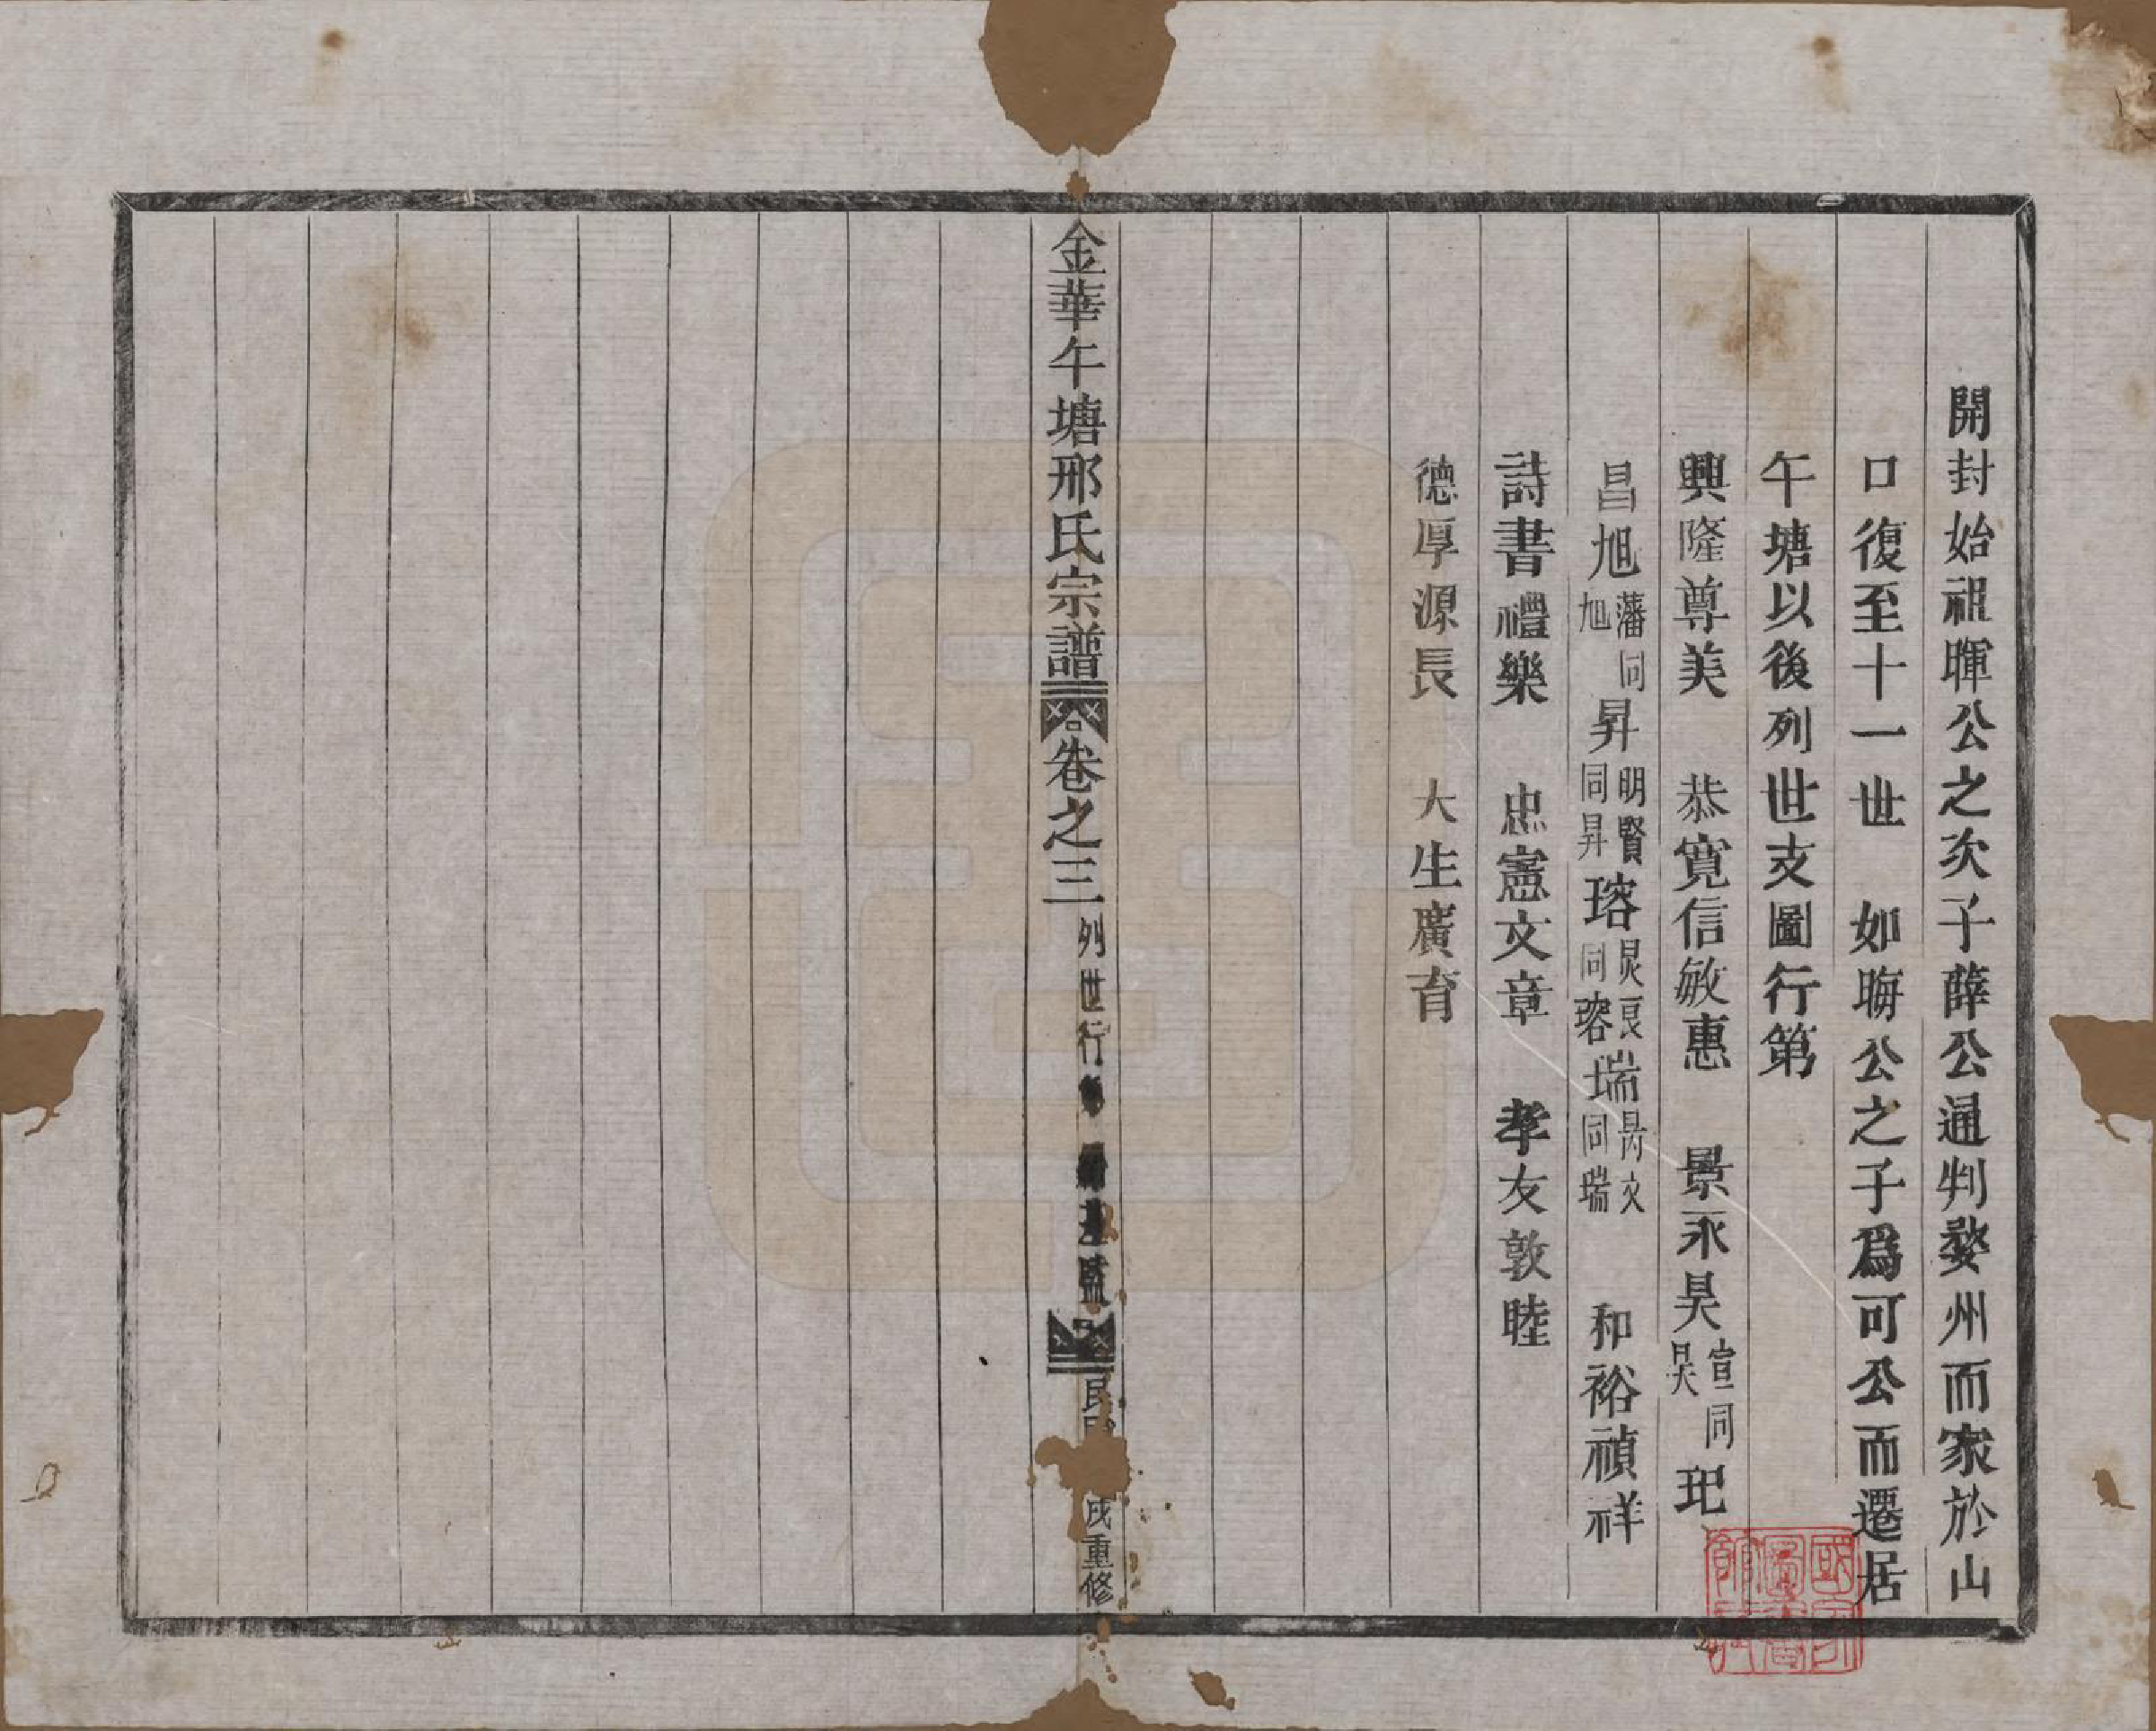 開封始祖暉公之次子薛公通判婺州而家於山
口復至十一世　如晦公之子爲可公而遷居
午塘以後列世支圖行第
興隆尊美　恭寬信敏惠　景永昊宣同昊玘
昌旭藩同旭昇明賢同昇瑢炅良同瑢瑞昺文同瑞　和裕禎祥
詩書禮樂　忠憲文章　孝友敦睦
德厚源長　大生廣育
金華午塘邢氏宗譜
卷之三 列世行
民 戌重修